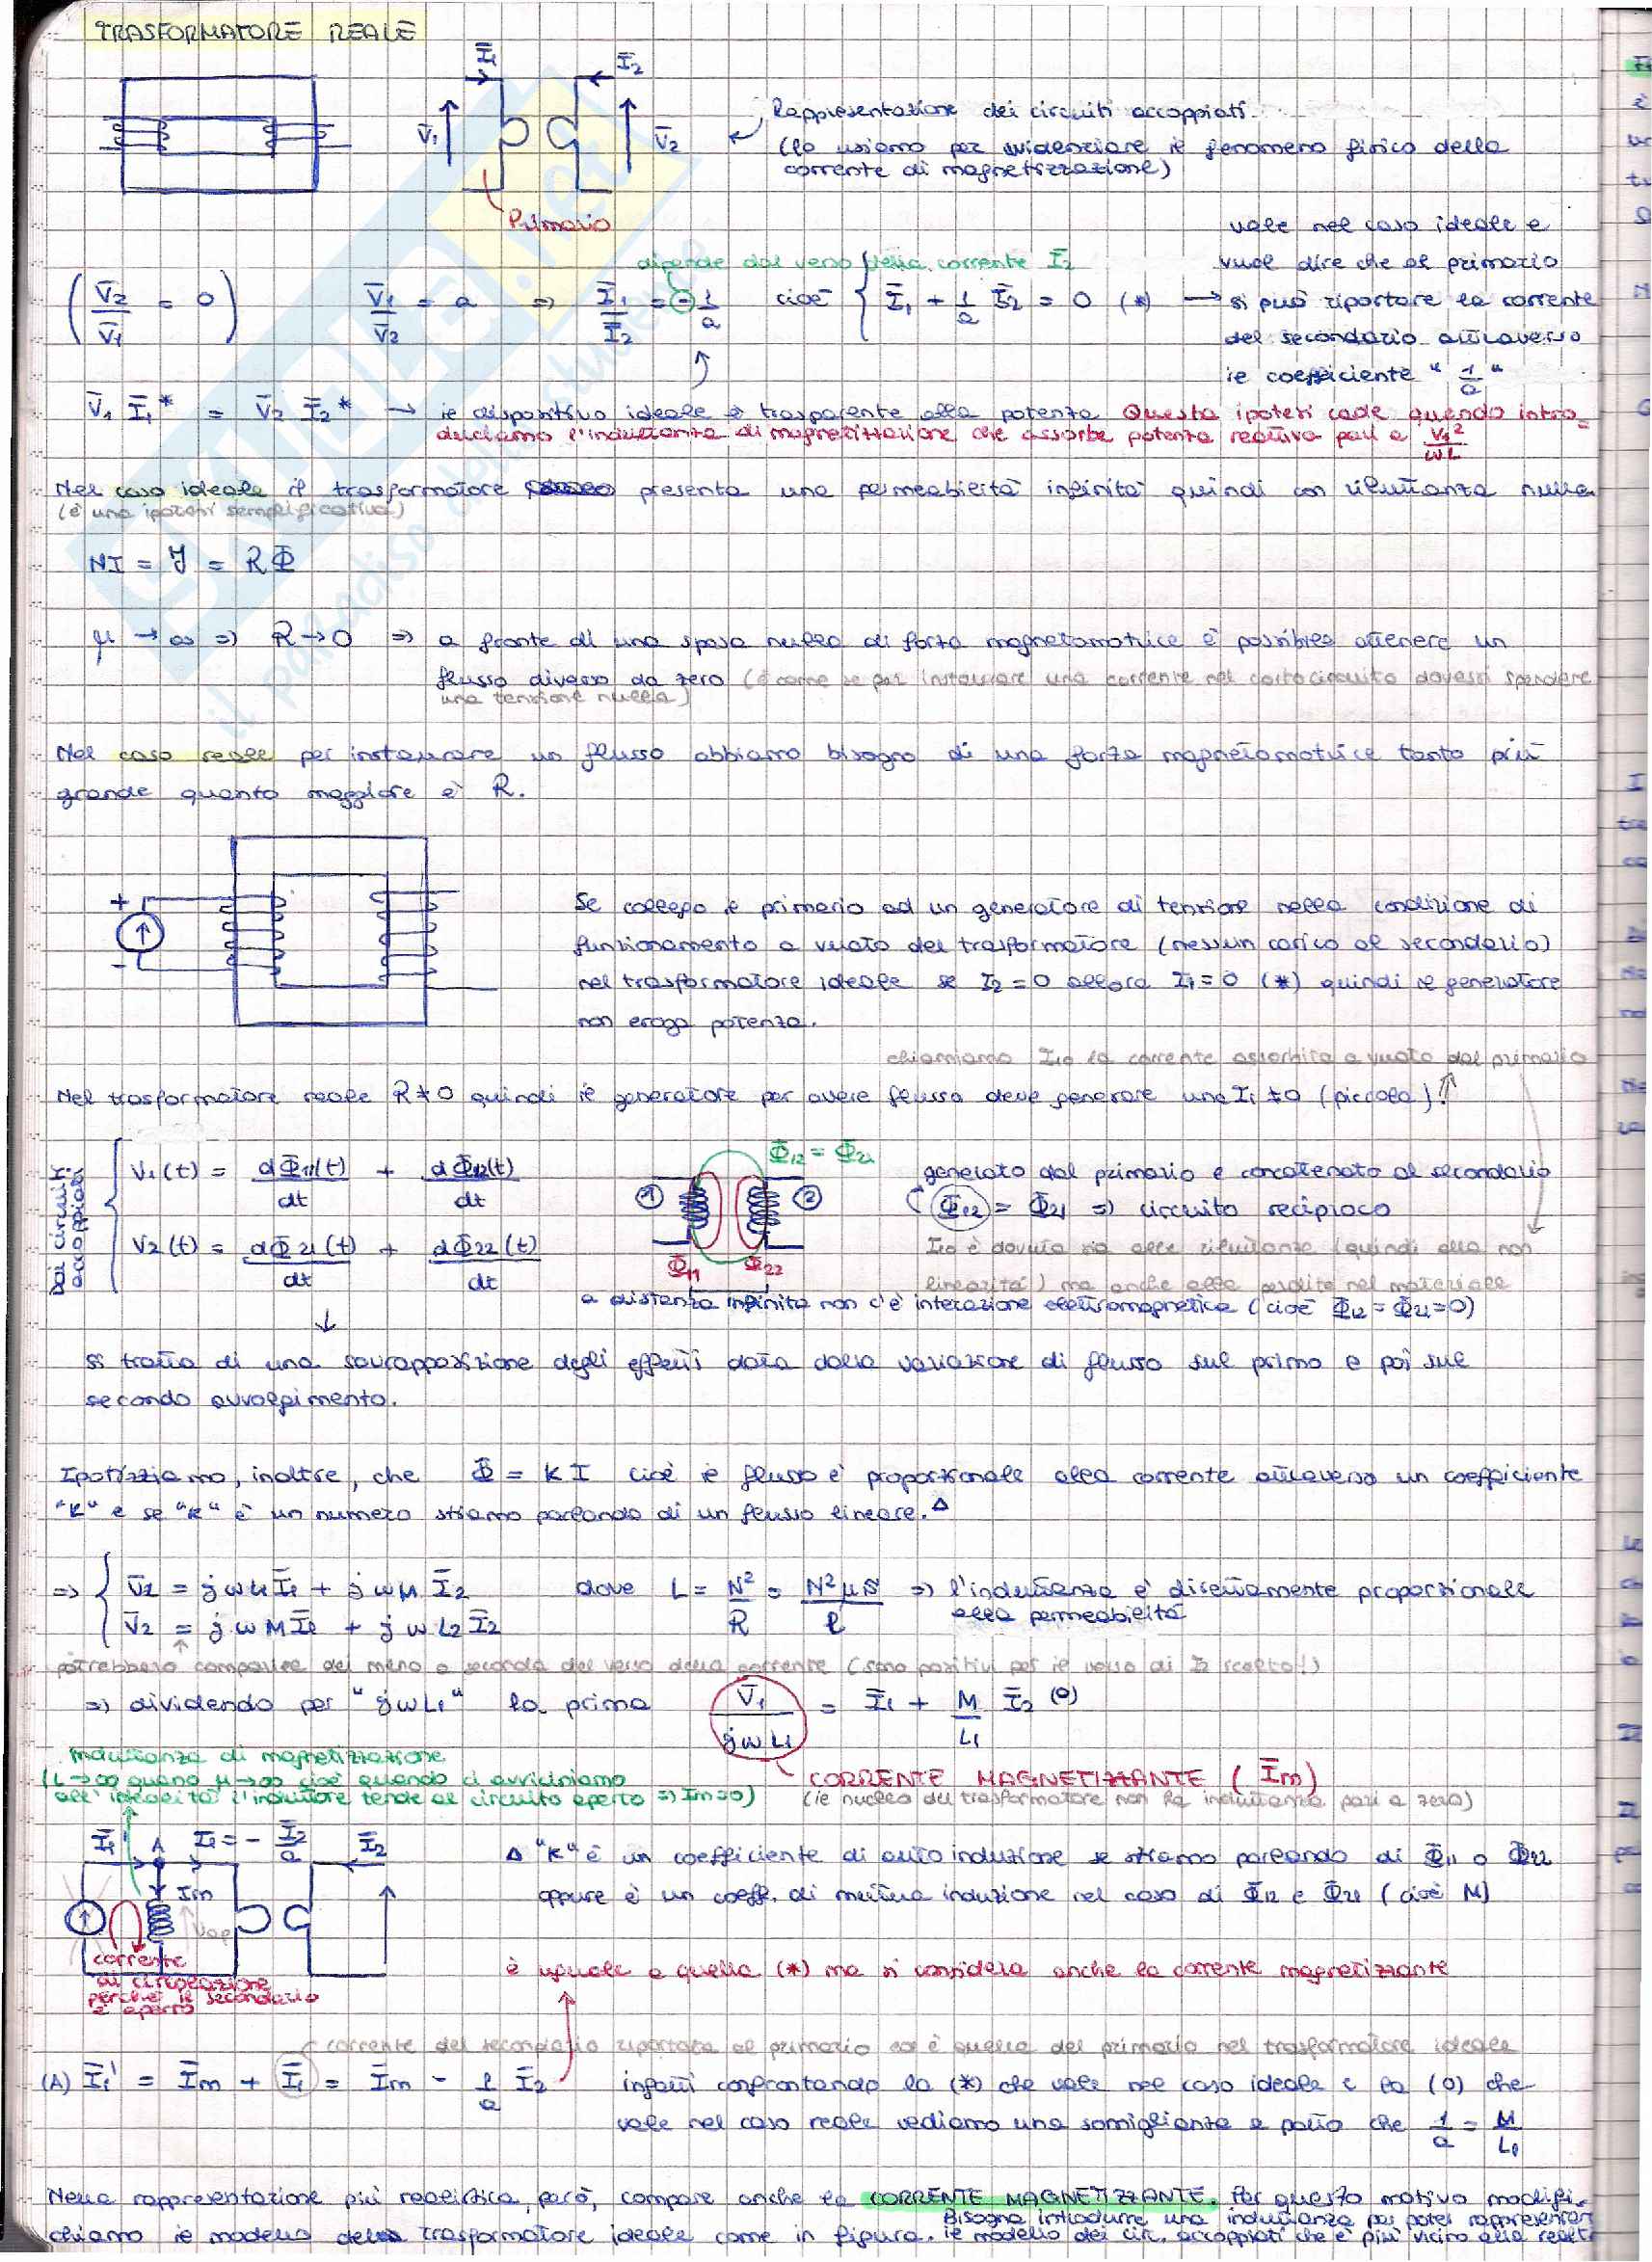 TRASFORMATORE REALE
Ī₁ Ī₂
V̄₁ V̄₂
Primario
Rappresentazione dei circuiti accoppiati
(lo usiamo per evidenziare il fenomeno fisico della
corrente di magnetizzazione)
dipende dal verso della corrente Ī₂
(V̄₂/V̄₁ = 0) V̄₁/V̄₂ = a ⇒ Ī₁/Ī₂ = -1/a cioè { Ī₁ + 1/a Ī₂ = 0 (*) →
vale nel caso ideale e
vuol dire che al primario
si può riportare la corrente
del secondario attraverso
il coefficiente "1/a"
V̄₁ Ī₁* = V̄₂ Ī₂* → il dispositivo ideale è trasparente alla potenza Questa ipotesi cade quando intro=
duciamo l'induttanza di magnetizzazione che assorbe potenza reattiva pari a V₁²/ωL
Nel caso ideale il trasformatore presenta una permeabilità infinita quindi con riluttanza nulla
(è una ipotesi semplificativa)
NI = F = RΦ
μ → ∞ ⇒ R → 0 ⇒ a fronte di una spesa nulla di forza magnetomotrice è possibile ottenere un
flusso diverso da zero (è come se per instaurare una corrente nel cortocircuito dovessi spendere
una tensione nulla)
Nel caso reale per instaurare un flusso abbiamo bisogno di una forza magnetomotrice tanto più
grande quanto maggiore è R.
+
-
Se collego il primario ad un generatore di tensione nella condizione di
funzionamento a vuoto del trasformatore (nessun carico al secondario)
nel trasformatore ideale se I₂ = 0 allora I₁ = 0 (*) quindi il generatore
non eroga potenza.
chiamiamo I₁₀ la corrente assorbita a vuoto dal primario
Nel trasformatore reale R ≠ 0 quindi il generatore per avere flusso deve generare una I₁ ≠ 0 (piccola)!
Dai circuiti accoppiati
V₁(t) = dΦ₁₁(t)/dt + dΦ₁₂(t)/dt
V₂(t) = dΦ₂₁(t)/dt + dΦ₂₂(t)/dt
Φ₁₂ = Φ₂₁
① ②
Φ₁₁ Φ₂₂
generato dal primario e concatenato al secondario
Φ₁₂ = Φ₂₁ ⇒ circuito reciproco
I₁₀ è dovuta sia alle riluttanze (quindi alla non
linearità) ma anche alle perdite nel materiale
a distanza infinita non c'è interazione elettromagnetica (cioè Φ₁₂ = Φ₂₁ = 0)
Si tratta di una sovrapposizione degli effetti data dalla variazione di flusso sul primo e poi sul
secondo avvolgimento.
Ipotizziamo, inoltre, che Φ = KI cioè il flusso è proporzionale alla corrente attraverso un coefficiente
"K" e se "K" è un numero stiamo parlando di un flusso lineare. Δ
⇒ { V̄₁ = jωL₁Ī₁ + jωM Ī₂ dove L = N²/R = N²μS/l ⇒ l'induttanza è direttamente proporzionale
alla permeabilità
V̄₂ = jωMĪ₁ + jωL₂Ī₂
potrebbero comparire dei meno a seconda del verso della corrente (sono positivi per il verso di I₂ scelto!)
⇒ dividendo per "jωL₁" la prima V̄₁/jωL₁ = Ī₁ + M/L₁ Ī₂ (o)
Induttanza di magnetizzazione
(L→∞ quando μ→∞ cioè quando ci avviciniamo
all'idealità l'induttore tende al circuito aperto ⇒ Im=0)
CORRENTE MAGNETIZZANTE (Īm)
(il nucleo del trasformatore non ha induttanza pari a zero)
Ī₁' A Ī₁ = -Ī₂/a Ī₂
Im
corrente
di circolazione
perché il secondario
è aperto
Δ "K" è un coefficiente di auto induzione se stiamo parlando di Φ₁₁ o Φ₂₂
oppure è un coeff. di mutua induzione nel caso di Φ₁₂ e Φ₂₁ (cioè M)
è uguale a quella (*) ma si considera anche la corrente magnetizzante
corrente del secondario riportata al primario ed è quella del primario nel trasformatore ideale
(A) Ī₁' = Īm + Ī₁ = Īm - 1/a Ī₂ infatti confrontando la (*) che vale nel caso ideale e la (o) che
vale nel caso reale vediamo una somiglianza a patto che 1/a = M/L₁
Nella rappresentazione più realistica, però, compare anche la CORRENTE MAGNETIZZANTE. Per questo motivo modifi-
chiamo il modello del trasformatore ideale come in figura.
Bisogna introdurre una induttanza per poter rappresentare
il modello dei cir. accoppiati che è più vicino alla realtà